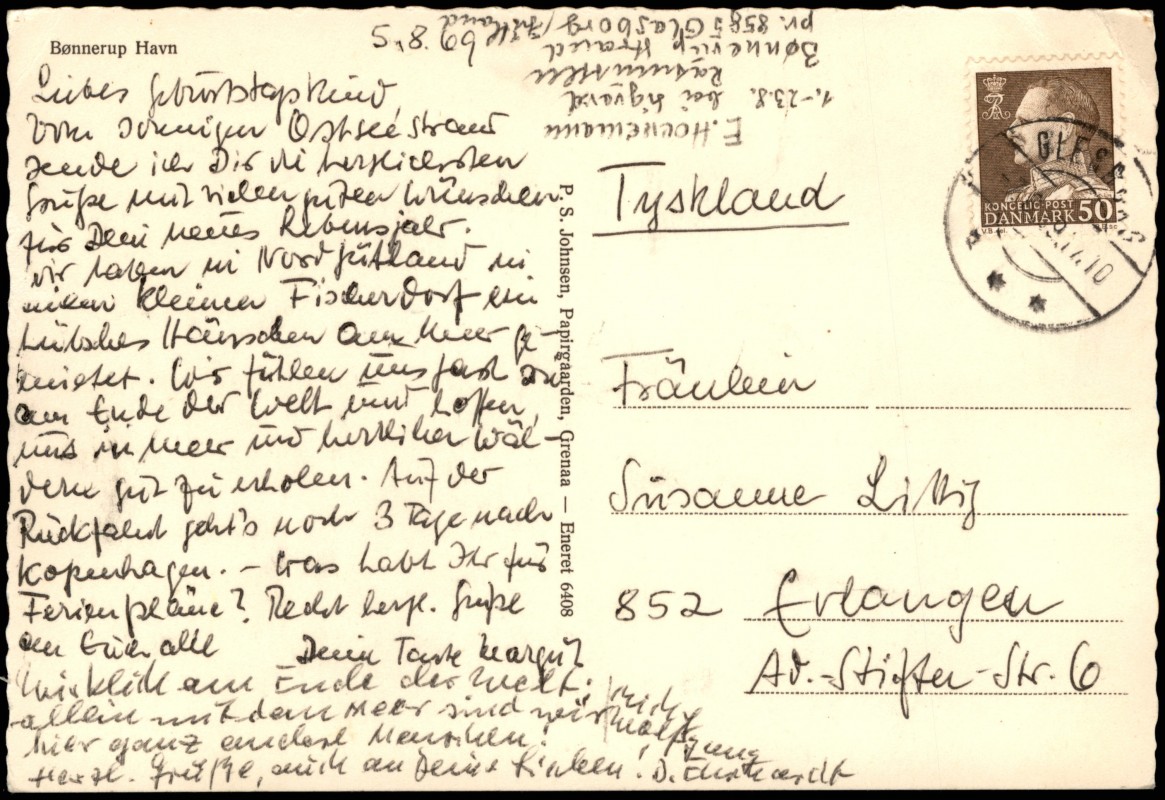 Bønnerup Havn
5.8.69
E. Hornemann
1.-23.8. bei Sigvard
Rasmussen
Bønnerup Strand
pr. 8585 Glasborg/Jütland
Liebes Geburtstagskind,
vom sonnigen Ostseestrand
sende ich Dir die herzlichsten
Grüße mit vielen guten Wünschen
für Dein neues Lebensjahr.
Wir haben in Nordjütland in
einem kleinen Fischerdorf ein
hübsches Häuschen am Meer ge-
mietet. Wir fühlen uns fast so
am Ende der Welt und hoffen,
uns in Meer und herrlichen Wäl-
dern gut zu erholen. Auf der
Rückfahrt geht's noch 3 Tage nach
Kopenhagen. – Was habt Ihr für
Ferienpläne? Recht herzl. Grüße
an Euch alle Deine Tante Margüt
Wirklich am Ende der Welt:
allein mit dem Meer sind wir
hier ganz andere Menschen!
Herzl. Grüße, auch an Deine Lieben!
P. S. Johnsen, Papirgaarden, Grenaa — Eneret 6408
KONGELIG POST
DANMARK 50
Tyskland
Fräulein
Susanne Littig
852 Erlangen
Ad.-Stifter-Str. 6